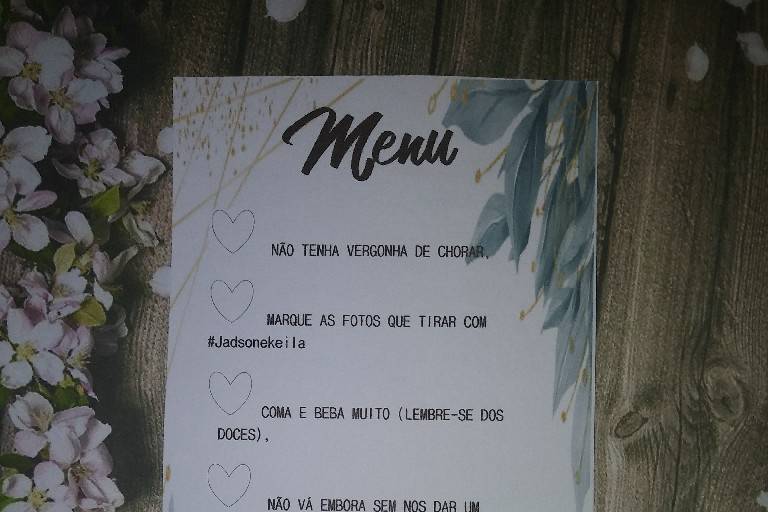 Menu
NÃO TENHA VERGONHA DE CHORAR,
MARQUE AS FOTOS QUE TIRAR COM
#Jadsonekeila
COMA E BEBA MUITO (LEMBRE-SE DOS
DOCES),
NÃO VÁ EMBORA SEM NOS DAR UM